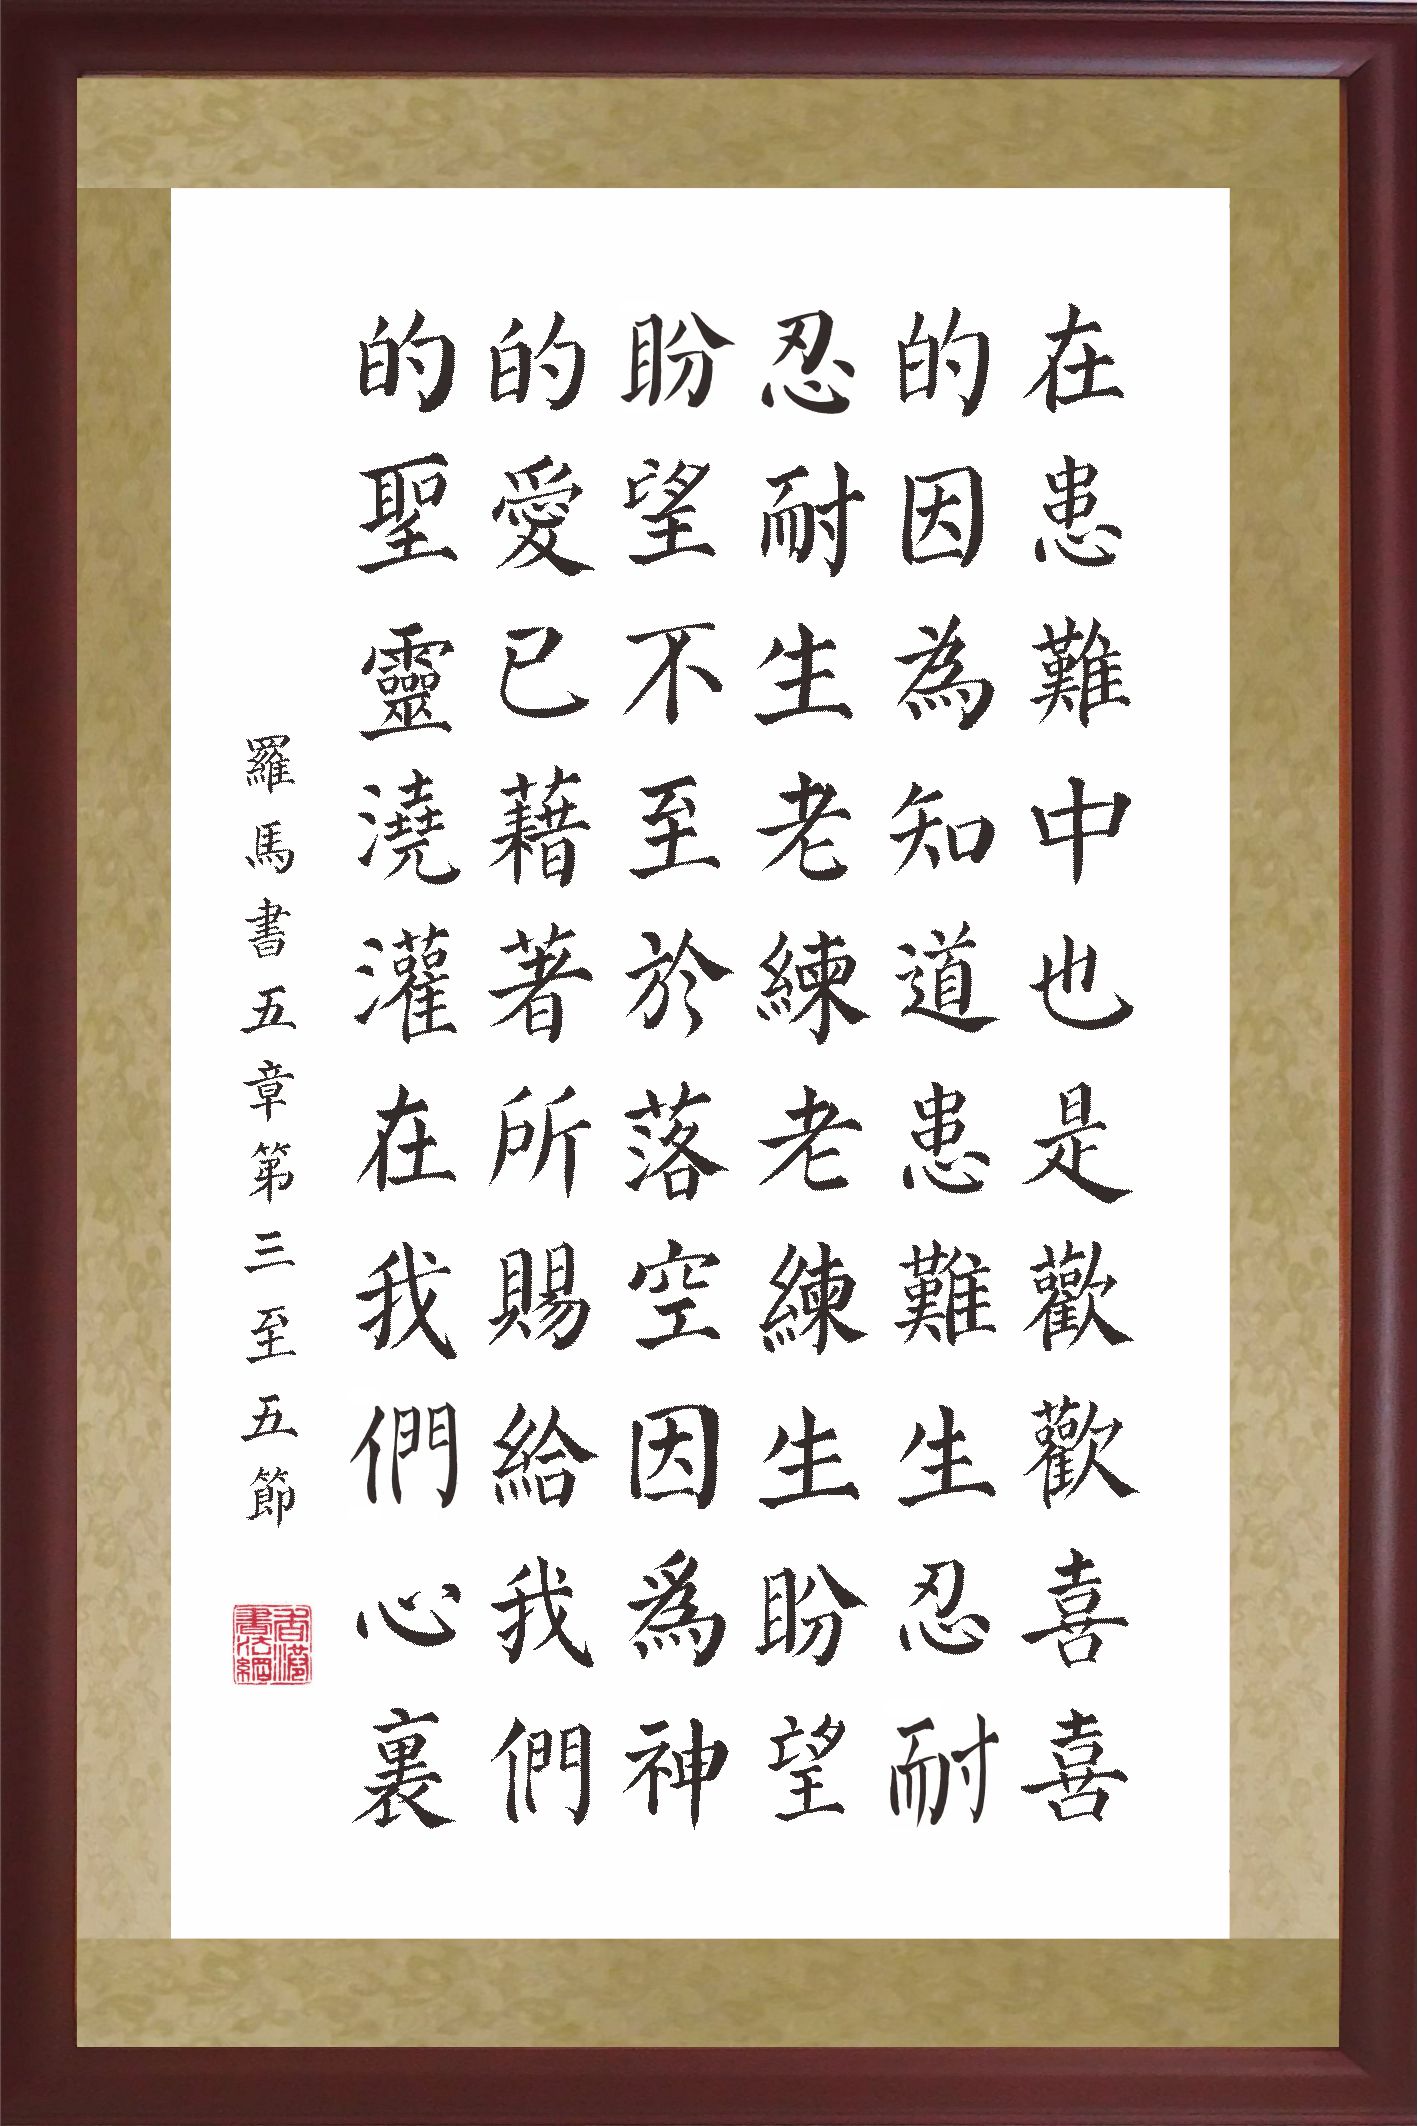 在患難中也是歡歡喜喜
的因為知道患難生忍耐
忍耐生老練老練生盼望
盼望不至於落空因為神
的愛已藉著所賜給我們
的聖靈澆灌在我們心裏
羅馬書五章第三至五節
香港書法網